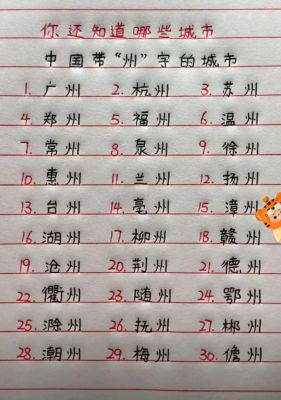 你还知道哪些城市
中国带“州”字的城市
1. 广州 2. 杭州 3. 苏州
4. 郑州 5. 福州 6. 温州
7. 常州 8. 泉州 9. 徐州
10. 惠州 11. 兰州 12. 扬州
13. 台州 14. 亳州 15. 漳州
16. 湖州 17. 柳州 18. 赣州
19. 沧州 20. 荆州 21. 德州
22. 衢州 23. 随州 24. 鄂州
25. 滁州 26. 抚州 27. 郴州
28. 潮州 29. 梅州 30. 儋州